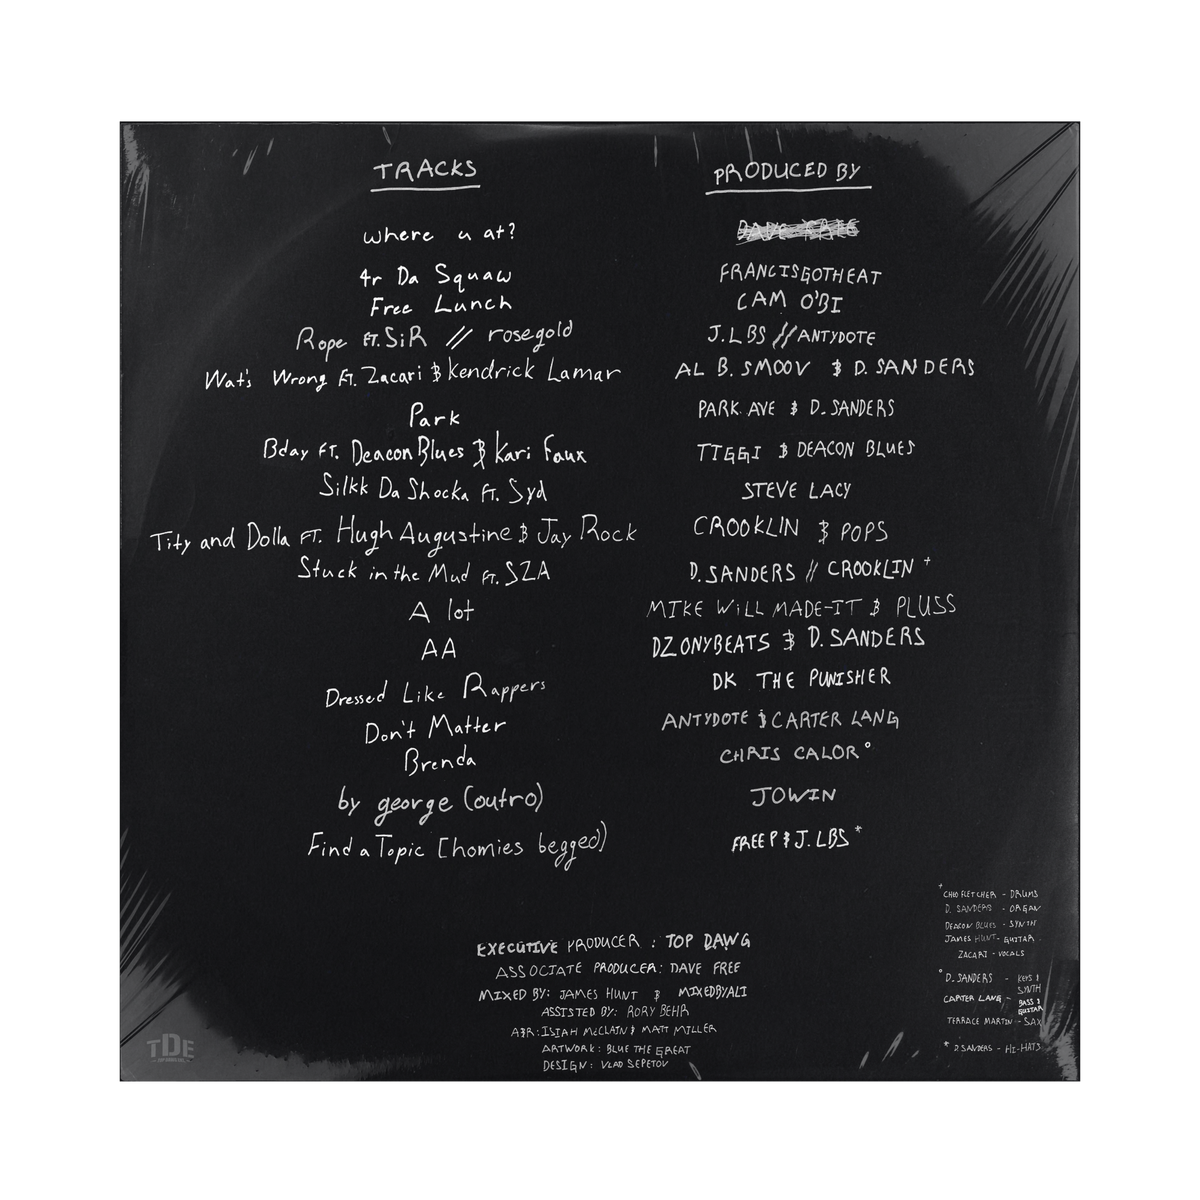 TRACKS PRODUCED BY
where u at?
4r Da Squaw FRANCISGOTHEAT
Free Lunch CAM O'BI
Rope FT. SiR // rosegold J.LBS // ANTYDOTE
Wat's Wrong FT. Zacari & Kendrick Lamar AL B. SMOOV & D. SANDERS
Park PARK AVE & D. SANDERS
Bday FT. Deacon Blues & Kari Faux TIGGI & DEACON BLUES
Silkk Da Shocka FT. Syd STEVE LACY
Tity and Dolla FT. Hugh Augustine & Jay Rock CROOKLIN & POPS
Stuck in the Mud FT. SZA D.SANDERS // CROOKLIN +
A lot MIKE WiLL MADE-IT & PLUSS
AA DZONYBEATS & D. SANDERS
Dressed Like Rappers DK THE PUNISHER
Don't Matter ANTYDOTE & CARTER LANG
Brenda CHRIS CALOR°
by george (outro) JOWIN
Find a Topic [homies begged) FREE P & J. LBS *
EXECUTIVE PRODUCER : TOP DAWG
ASSOCIATE PRODUCER: DAVE FREE
MIXED BY: JAMES HUNT & MIXEDBYALI
ASSISTED BY: RORY BEHR
A&R: ISIAH McCLAIN & MATT MILLER
ARTWORK : BLUE THE GREAT
DESIGN : VLAD SEPETOV
+ CHRO FLETCHER - DRUMS
D. SANDERS - ORGAN
DEACON BLUES - SYNTH
JAMES HUNT - GUITAR
ZACARI - VOCALS
° D. SANDERS - KEYS &
SYNTH
CARTER LANG - BASS &
GUITAR
TERRACE MARTIN - SAX
* D SANDERS - HI-HATS
TDE